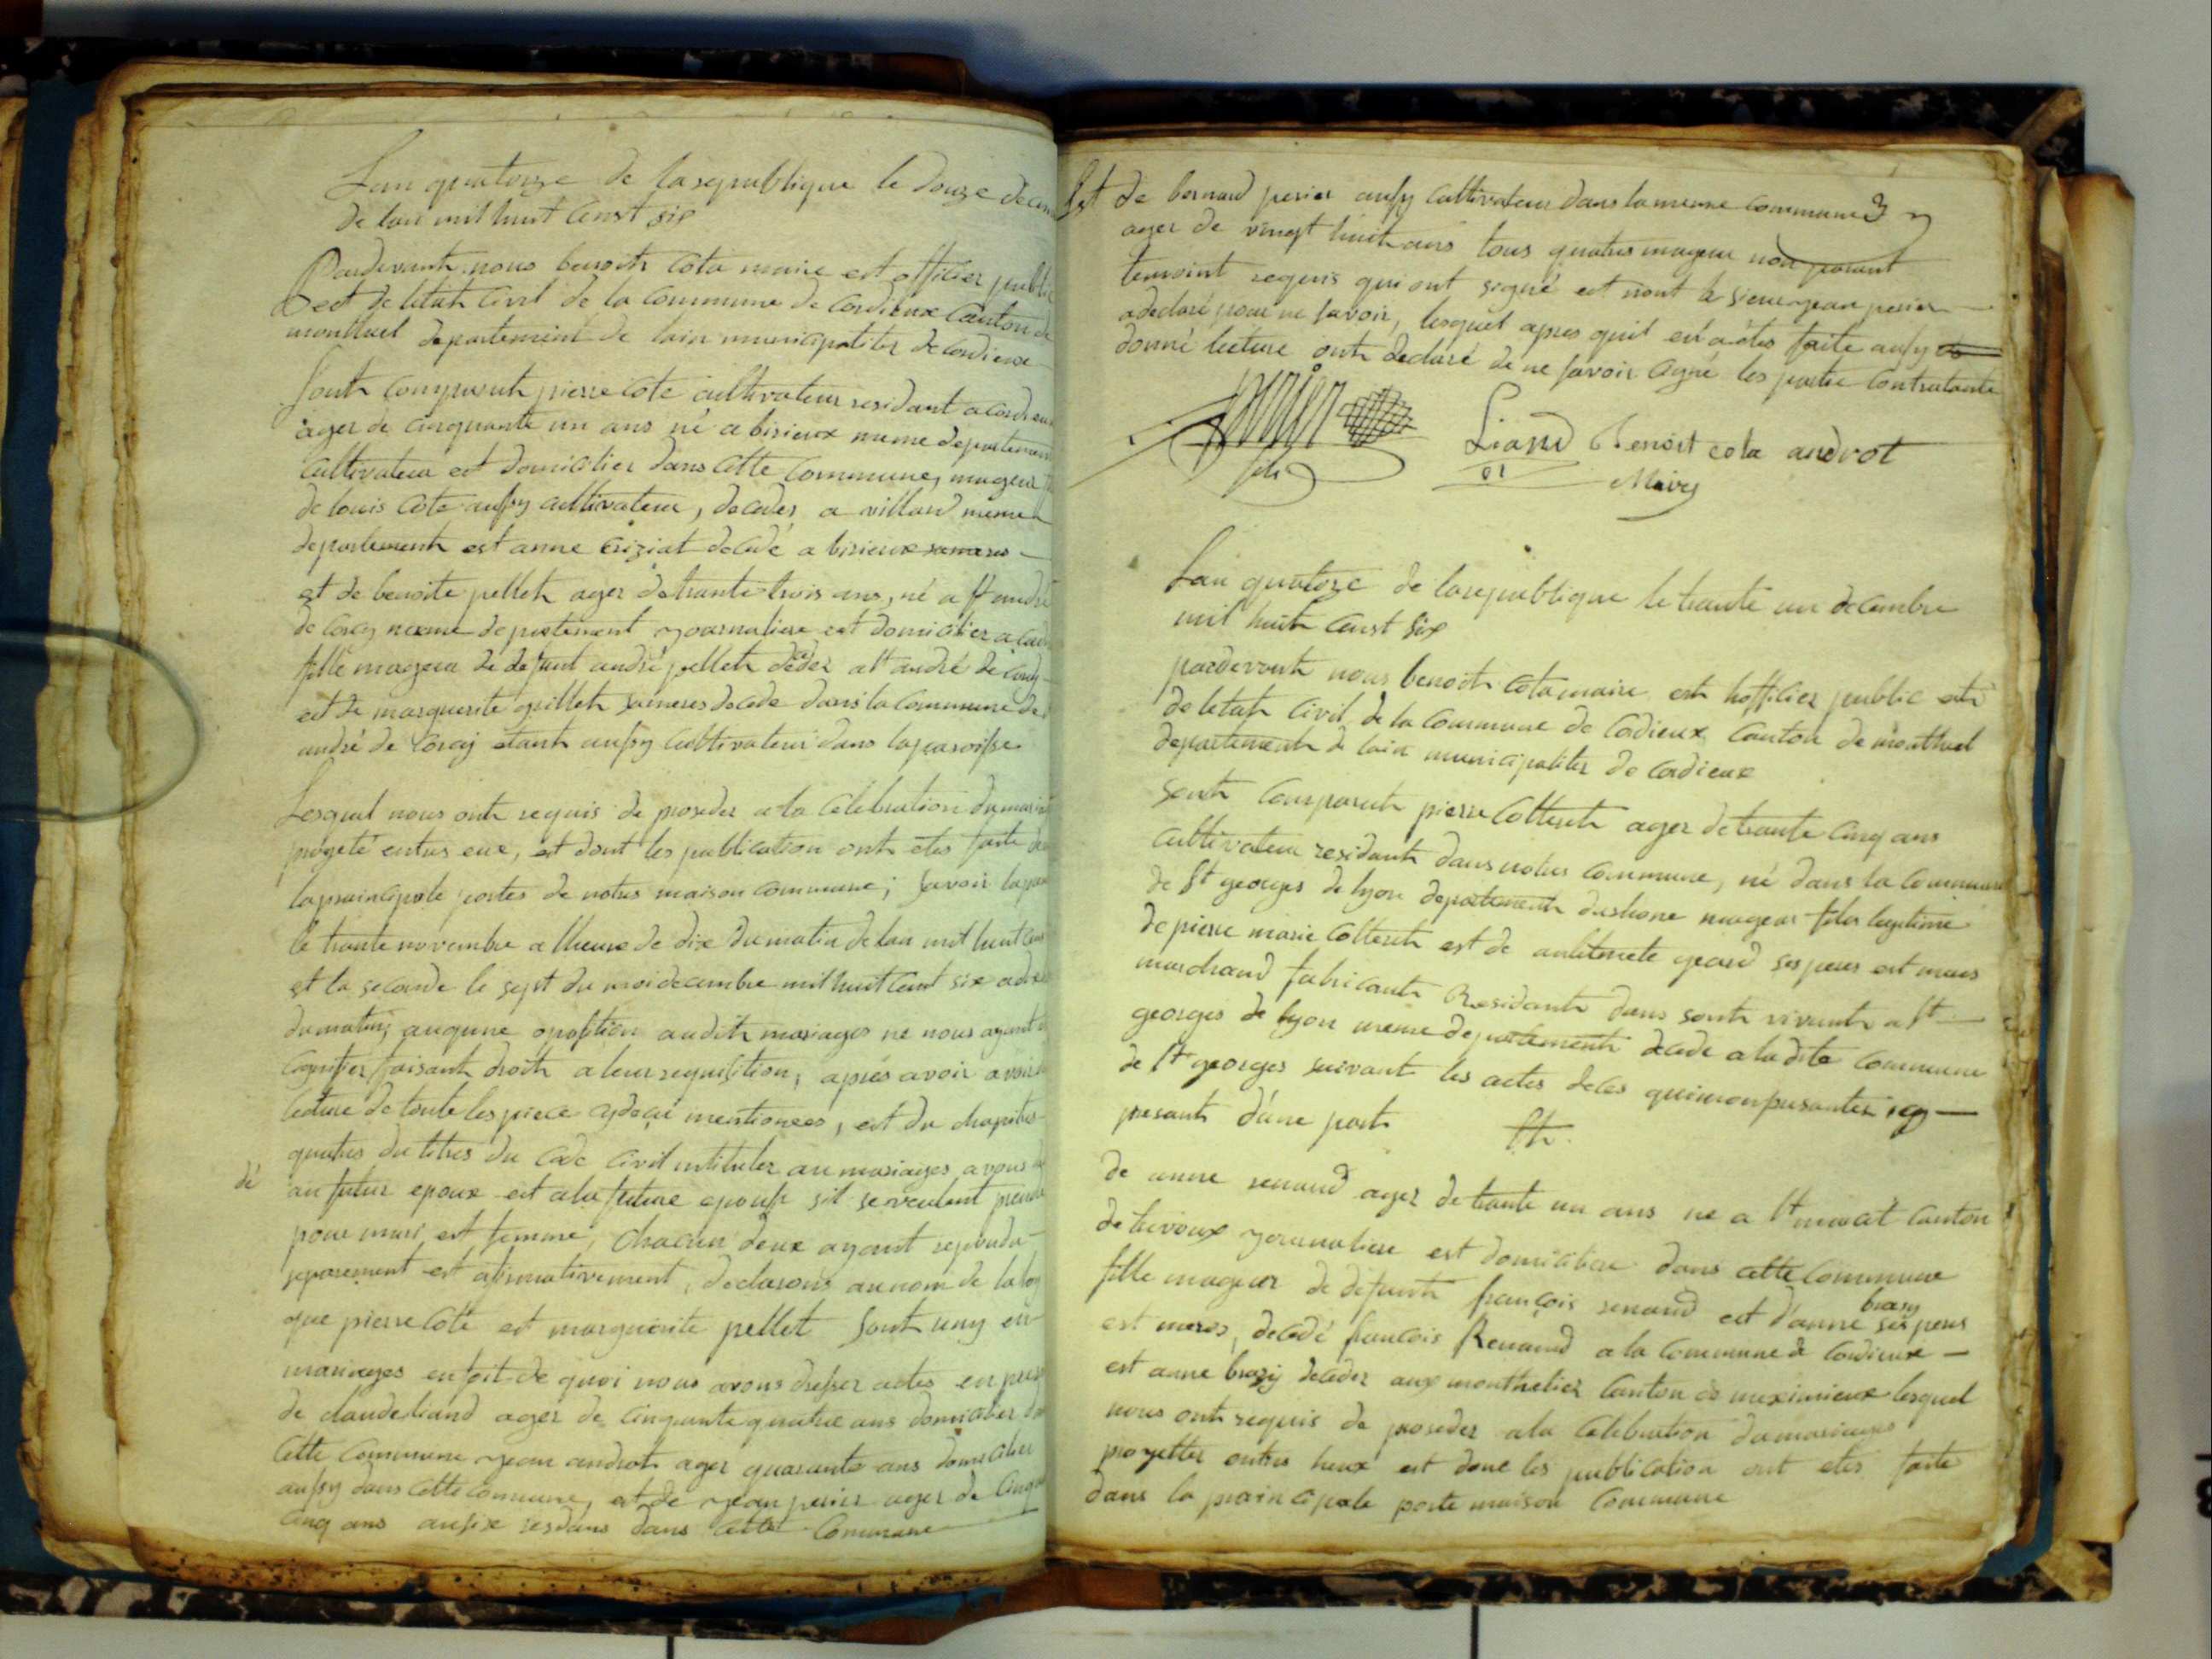 Lan quatorze de la republique le douze decem
de lan mil huit Censt six
Pardevant nous benoit Cota maire est officier public
est de letat Civil de la Commune de Cordieux Canton de
montluel departement de lain municipaliter de Cordieux
Sont Comparut pierre Cote cultivateur residant a Cordieux
ager de cinquante un ans né a birieux meme departement
Cultivateur est domicilier dans cette Commune, mageur
de louis Cote aussy cultivateur, deceder a villard meme
departement est anne criziat decedé a birieux
et de benoite pellet ager de trante trois ans, né a st andré
de Corcy meme departement journaliere est domicilier a Cord
fille mageur de defunt andré pellet deceder a st andré de Corcy
est de marguerite guillet sameres decede dans la Commune de
andré de Corcy etant aussy Cultivateur dans la paroisse
Lesquel nous ont requis de proseder a la Celebration du mari
projeté entres eux, est dont les publication ont etes faite de
la praincipale portes de notres maison Commune; savoir la
le trante novembre a lheure de dix du matin de lan mil huit Cens
et la seconde le sept du moi decembre mil huit Cent six a dix
du matin, augune oposition audit mariages ne nous ayant
signifier faisant droit a leur requisition, après avoir avoir
lecture de toute les piece cydesú mentionees, est du chapitres
quatres du titres du Code Civil intituler au mariages, avons
dé
au futur epoux est a la future epouse sil se veulent prendre
pour mari est femme, chacun deux ayant repondu
separement est afirmativement, declarons au nom de la loy
que pierre Cote est marguerite pellet sont uny en
mariages en foit de quoi nous avons dresser actes en pres
de claude liand ager de cinquante quatre ans domicilier d
Cette Commune jean androt ager quarante ans domicilier
aussy dans cette Commune, est de jean perier ager de Cinq
Cinq ans ausix resdans dans Cette Commune
Est de bernard perier aussy Cultivateur dans la meme Commune
ager de vingt huit ans tous quatres mageur non parant
temoint requis qui ont signé est nont le sieur jean perier
a declaré pour ne savoir, lesquel apres quil en a étés faite aussy
donné lecture ont declaré de ne savoir signé les partie Contractante
perier
fils
Liand Benoit cota androt
Maire
Lan quatorze de la republique le trante un decembre
mil huit Censt Six
pardevant nous benoit Cota maire est hofficier public est
de letat Civil de la Commune de Cordieux Canton de montluel
departement de lain municipaliter de Cordieux
Sont Comparut pierre Cotteret ager de trante Cinq ans
Cultivateur residant dans notres Commune, né dans la Commune
de St georges de lyon departement durhone mageur fils legitime
de pierre marie Cotteret est de geard ses peres est meres
marchand fabricant Residant dans sont vivant a St
georges de lyon meme departement decede a la dite Commune
de St georges suivant les actes deces
presant d'une part
de anne renaud ager de trante un ans ne a Canton
de trevoux journaliere est domicilier dans cette Commune
fille mageur de defunt françois renaud est d'anne brazy ses peres
est meres, decedé francois Renaud a la Commune de Cordieux
est anne brazy deceder aux monthelier Canton de meximieux lesquel
nous ont requis de proseder a la Celebration du mariages
proyetter entres heux est dont les publication ont etés faite
dans la praincipale porte maison Commune